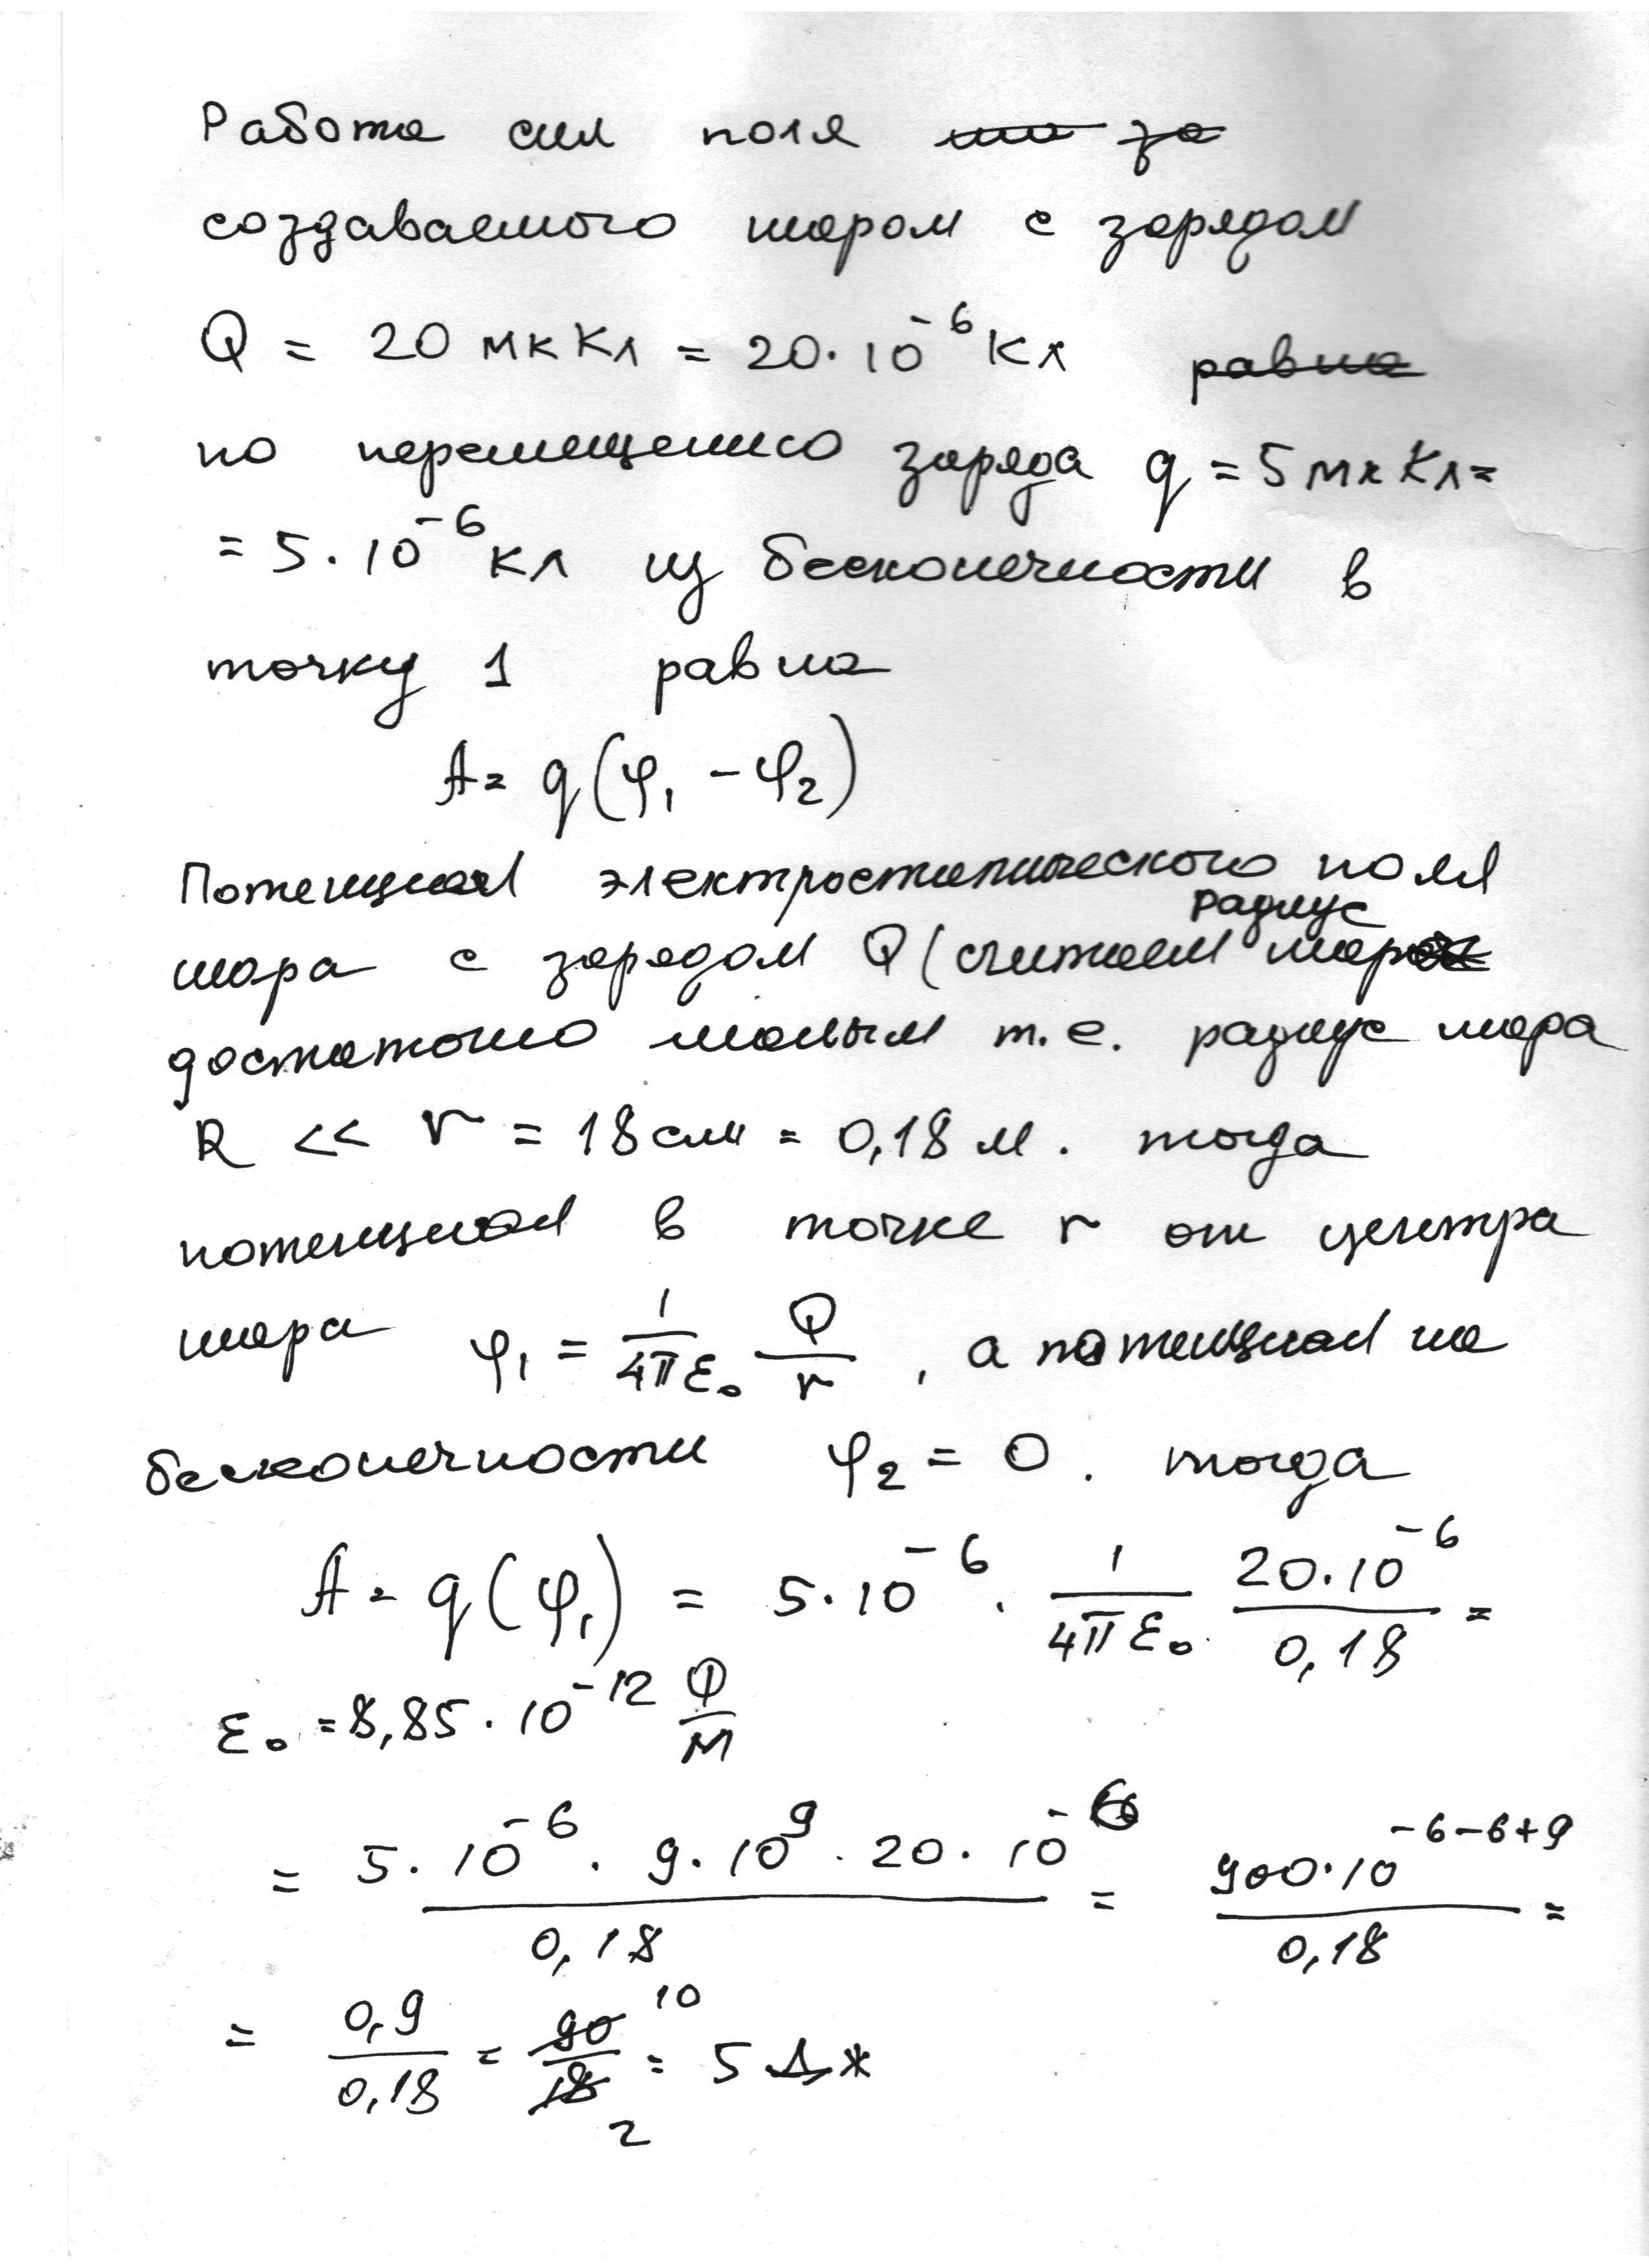 Работа сил поля
создаваемого шаром с зарядом
Q = 20 мкКл = 20·10⁻⁶ Кл равна
по перемещению заряда q = 5 мкКл =
= 5·10⁻⁶ кл из бесконечности в
точку 1 равна
A = q(φ₁ - φ₂)
Потенциал электростатического поля
радиус
шара с зарядом Q (считаем шара
достаточно малым т.е. радиус шара
R << r = 18 см = 0,18 м. тогда
потенциал в точке r от центра
шара φ₁ = 1/4πε₀ Q/r , а потенциал на
бесконечности φ₂ = 0. тогда
A = q(φ₁) = 5·10⁻⁶ · 1/4πε₀ · 20·10⁻⁶/0,18 =
ε₀ = 8,85·10⁻¹² Ф/м
= 5·10⁻⁶ · 9·10⁹ · 20·10⁻⁶/0,18 = 900·10⁻⁶⁻⁶⁺⁹/0,18 =
= 0,9/0,18 = 90/18 10/2 = 5 Дж